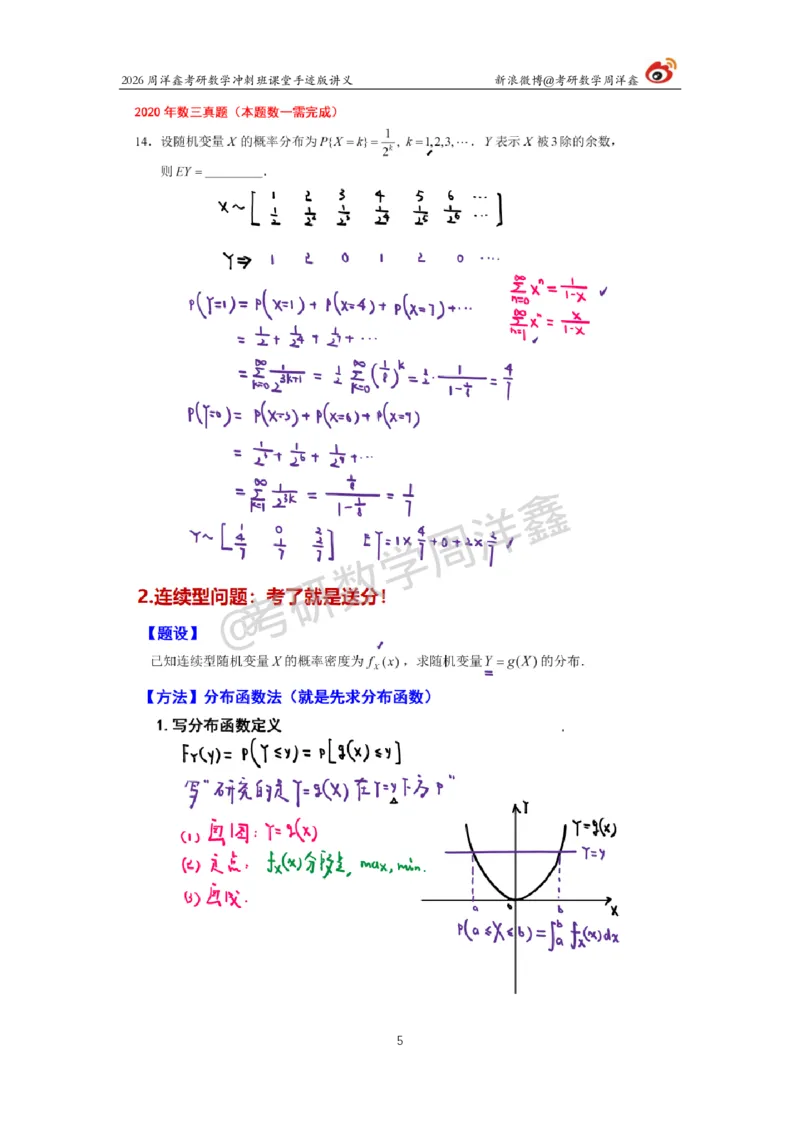 2026 周洋鑫考研数学冲刺班课堂手迹版讲义 新浪微博@考研数学周洋鑫
2020 年数三真题（本题数一需完成）
14．设随机变量 X 的概率分布为 P{X = k} = 1/2^k, k = 1,2,3,⋯．Y 表示 X 被 3 除的余数，
则 EY = ________．
X ~ [ 1 2 3 4 5 6 ⋯
1/2 1/2² 1/2³ 1/2⁴ 1/2⁵ 1/2⁶ ⋯ ]
Y ⇒ 1 2 0 1 2 0 ⋯
P(Y=1) = P(X=1) + P(X=4) + P(X=7) + ⋯
∑_{n=0}^{∞} x^n = 1/(1-x) ✓
= 1/2 + 1/2⁴ + 1/2⁷ + ⋯
∑_{n=1}^{∞} x^n = x/(1-x)
= ∑_{k=0}^{∞} 1/2^{3k+1} = 1/2 ∑_{k=0}^{∞} (1/8)^k = 1/2 · 1/(1-1/8) = 4/7
P(Y=0) = P(X=3) + P(X=6) + P(X=9)
= 1/2³ + 1/2⁶ + 1/2⁹ + ⋯
= ∑_{k=1}^{∞} 1/2^{3k} = (1/8)/(1-1/8) = 1/7
Y ~ [ 1 0 2
4/7 1/7 2/7 ] EY = 1×4/7 + 0 + 2×2/7 ✓
@考研数学周洋鑫
2.连续型问题：考了就是送分！
【题设】
已知连续型随机变量 X 的概率密度为 f_X(x)，求随机变量 Y = g(X) 的分布．
【方法】分布函数法（就是先求分布函数）
1. 写分布函数定义
F_Y(y) = P(Y≤y) = P[g(X)≤y]
写"研究的是 Y=g(X) 在 Y=y 下方 P"
(1) 画图: Y=g(X)
(2) 定点: f_X(x) 分段点, max, min.
(3) 画线.
Y
Y=g(X)
Y=y
a 0 b X
P(a≤X≤b) = ∫_a^b f_X(x)dx
5